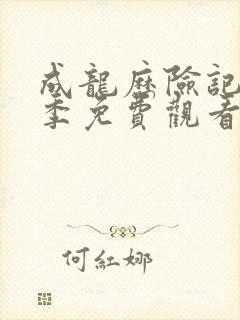 成龍歷險記
季免費觀看
何紅娜